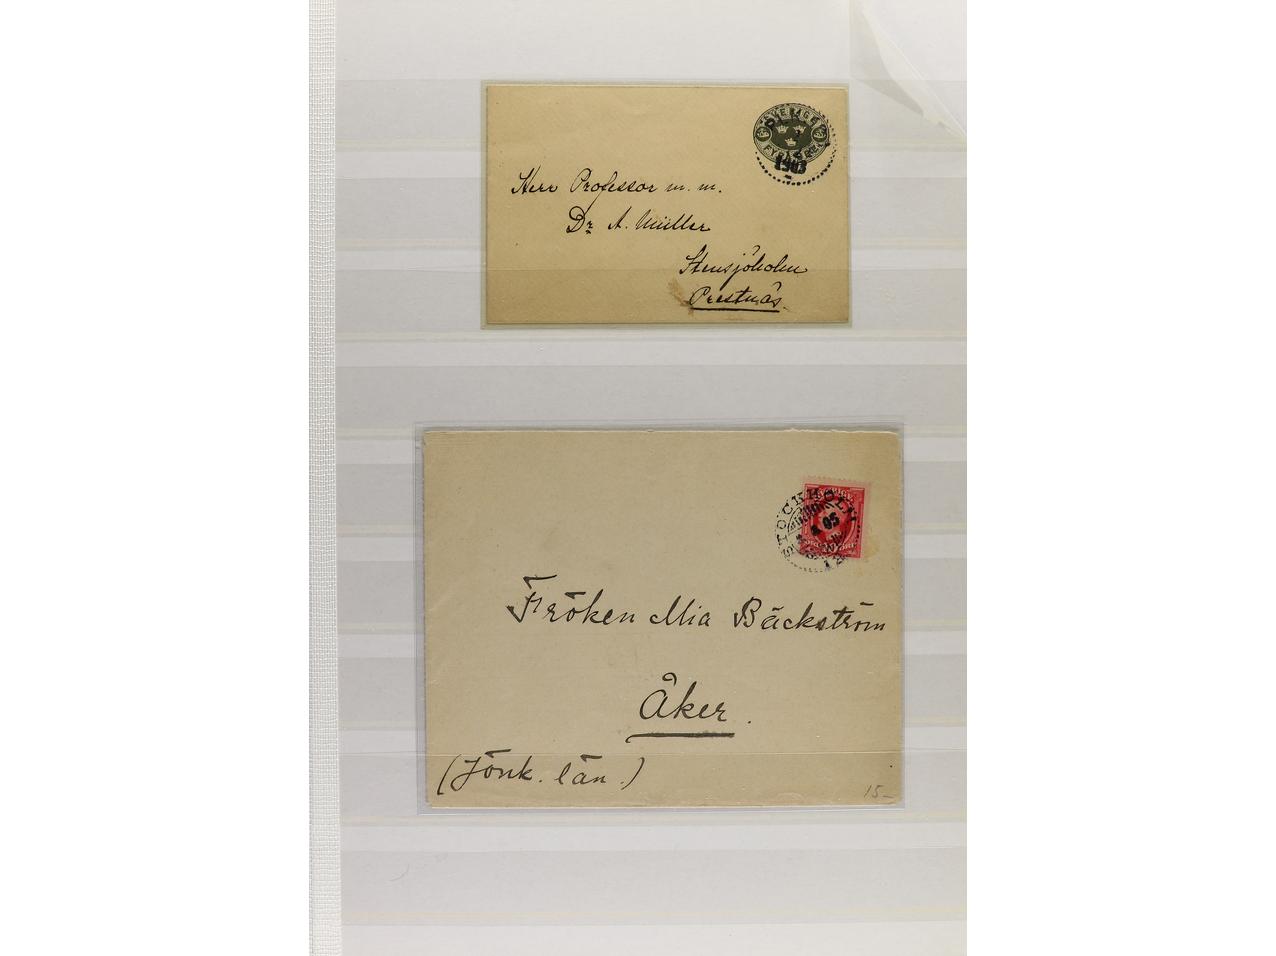 SVERIGE
FYRA ÖRE
1903
Herr Professor m. m.
Dr A. Müller
Stensjöholm
Prestnäs.
STOCKHOLM
05
Fröken Mia Bäckström
Åker.
(Jönk. län.)
15-